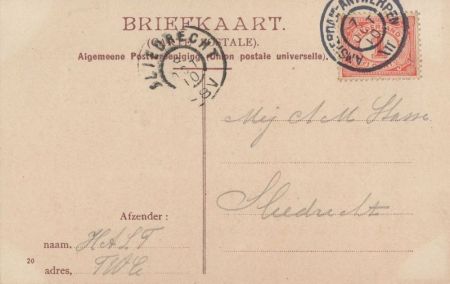 BRIEFKAART.
(CARTE POSTALE).
Algemeene Postvereeniging (Union postale universelle).
SLIEDRECHT
AMSTERDAM-ANTWERPEN
III
Mej A M Stasse
Sliedrecht
Afzender:
naam, HALT
20
adres, TWC